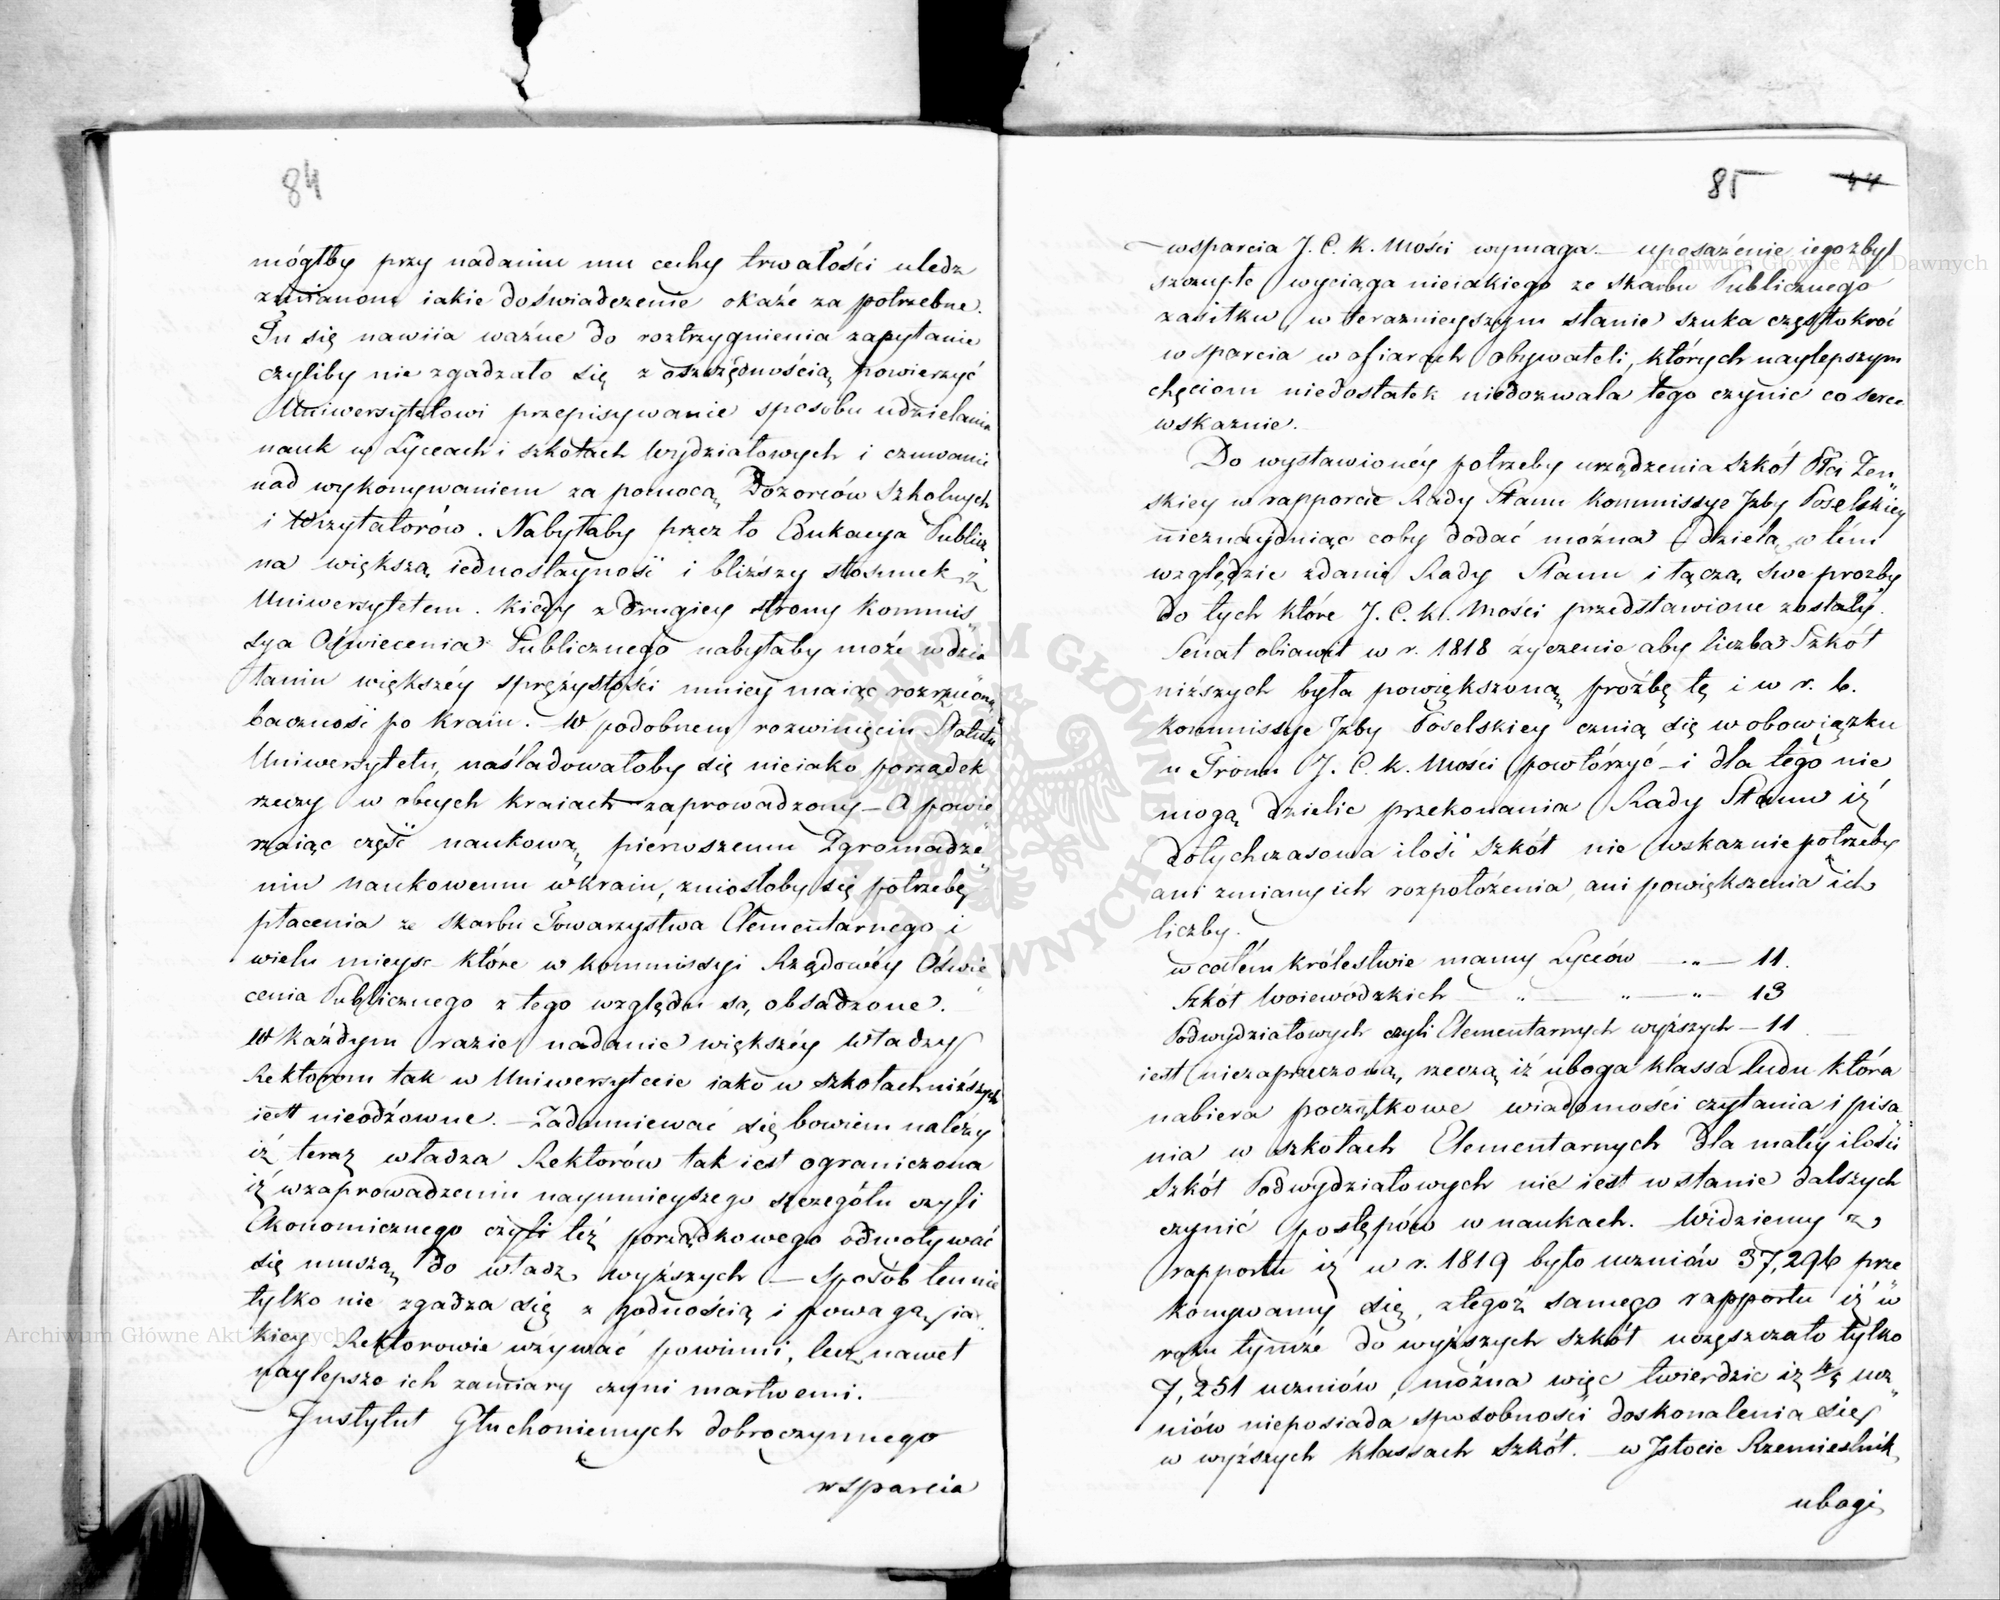 84
mógłby przy nadaniu mu cechy trwałości uledz
zmianom iakie doświadczenie okaże za potrzebne.
Tu się nawiia ważne do roztrzygnienia zapytanie
czyliby nie zgadzało się z oszczędnością powierzyć
Uniwersytetowi przepisywanie sposobu udzielania
nauk w Lyceach i szkołach Wydziałowych i czuwanie
nad wykonywaniem za pomocą Dozorców Szkolnych
i Wizytatorów. Nabyłaby przez to Edukacya Publicz
na większą iednostayność i bliższy stosunek z
Uniwersytetem. Kiedy z drugiey strony Kommis
sya Oświecenia Publicznego nabyłaby może w dzia
łaniu większéy sprężystości mniey maiąc rozrzuconą
baczność po Kraiu. W podobnem rozwinięciu Statutu
Uniwersytetu, naśladowałoby się nieiako porządek
rzeczy w obcych kraiach zaprowadzony – A powie
rzaiąc część naukową pierwszemu Zgromadze
niu Naukowemu w kraiu, zniosłoby się potrzebę
płacenia ze skarbu Towarzystwa Elementarnego i
wielu mieysc które w Kommissyi Rządowéy Oświe
cenia Publicznego z tego względu są obsadzone.
W każdym razie nadanie większéy Władzy
Rektorom tak w Uniwersytecie iako w szkołach niższych
iest nieodzowne. – Zadumiewać się bowiem należy
iż teraz władza Rektorów tak iest ograniczona
iż w zaprowadzeniu naymnieyszego szczegółu czyli
Ekonomicznego czyli też porządkowego odwoływać
się muszą do władz wyższych – Sposób ten nie
tylko nie zgadza się z godnością i powagą ia
kiey Rektorowie używać powinni, lecz nawet
naylepsze ich zamiary czyni martwemi.
Instytut Głuchoniemych dobroczynnego
wsparcia
85 44
wsparcia J. C. K. Mości wymaga – uposażenie iego zbyt
szczupłe wyciąga nieiakiego ze skarbu Publicznego
zasiłku w teraznieyszym stanie szuka częstokroć
wsparcia w ofiarach obywateli, których naylepszym
chęciom niedostatek niedozwala tego czynić co serce
wskazuie.
Do wystawionéy potrzeby urządzenia Szkół Płci Żeń
skiey w rapporcie Rady Stanu Kommissye Izby Poselskiey
nieznayduiąc coby dodać można dzielą w tém
względzie zdanie Rady Stanu i łączą swe prozby
do tych które J. C. K. Mości przedstawione zostały.
Senat obiawił w r. 1818 życzenie aby liczba Szkół
niższych była powiększoną prozbę tę i w r. b.
Kommissye Izby Poselskiey cznią się w obowiązku
u Tronu J. C. K. Mości powtórzyć – i dla tego nie
mogą dzielić przekonania Rady Stanu iż
dotychczasowa ilość szkół nie wskazuie potrzeby
ani zmiany ich rozpołożenia, ani powiększenia ich
liczby.
w całém Królestwie mamy Lyceów – „ – 11.
Szkół Woiewódzkich – „ – „ – „ – 13
Podwydziałowych czyli Elementarnych wyższych – 11
iest niezaprzeczoną rzeczą iż uboga klassa ludu która
nabiera początkowe wiadomości czytania i pisa
nia w szkołach Elementarnych dla małéy ilości
Szkół Podwydziałowych nie iest w stanie dalszych
czynić postępów w naukach. Widziemy z
rapportu iż w r. 1819 było uczniów 37,296 prze
konywamy się z tegoż samego rapportu iż w
roku tymże do wyższych szkół uczęszczało tylko
7,251 uczniów, można więc twierdzić iż 4/5 ucz
niów nieposiada sposobności doskonalenia się
w wyższych klassach Szkół. – w Istocie Rzemieślnik
ubogi
Archiwum Główne Akt Dawnych
Archiwum Główne Akt Dawnych
ARCHIWUM GŁÓWNE AKT DAWNYCH